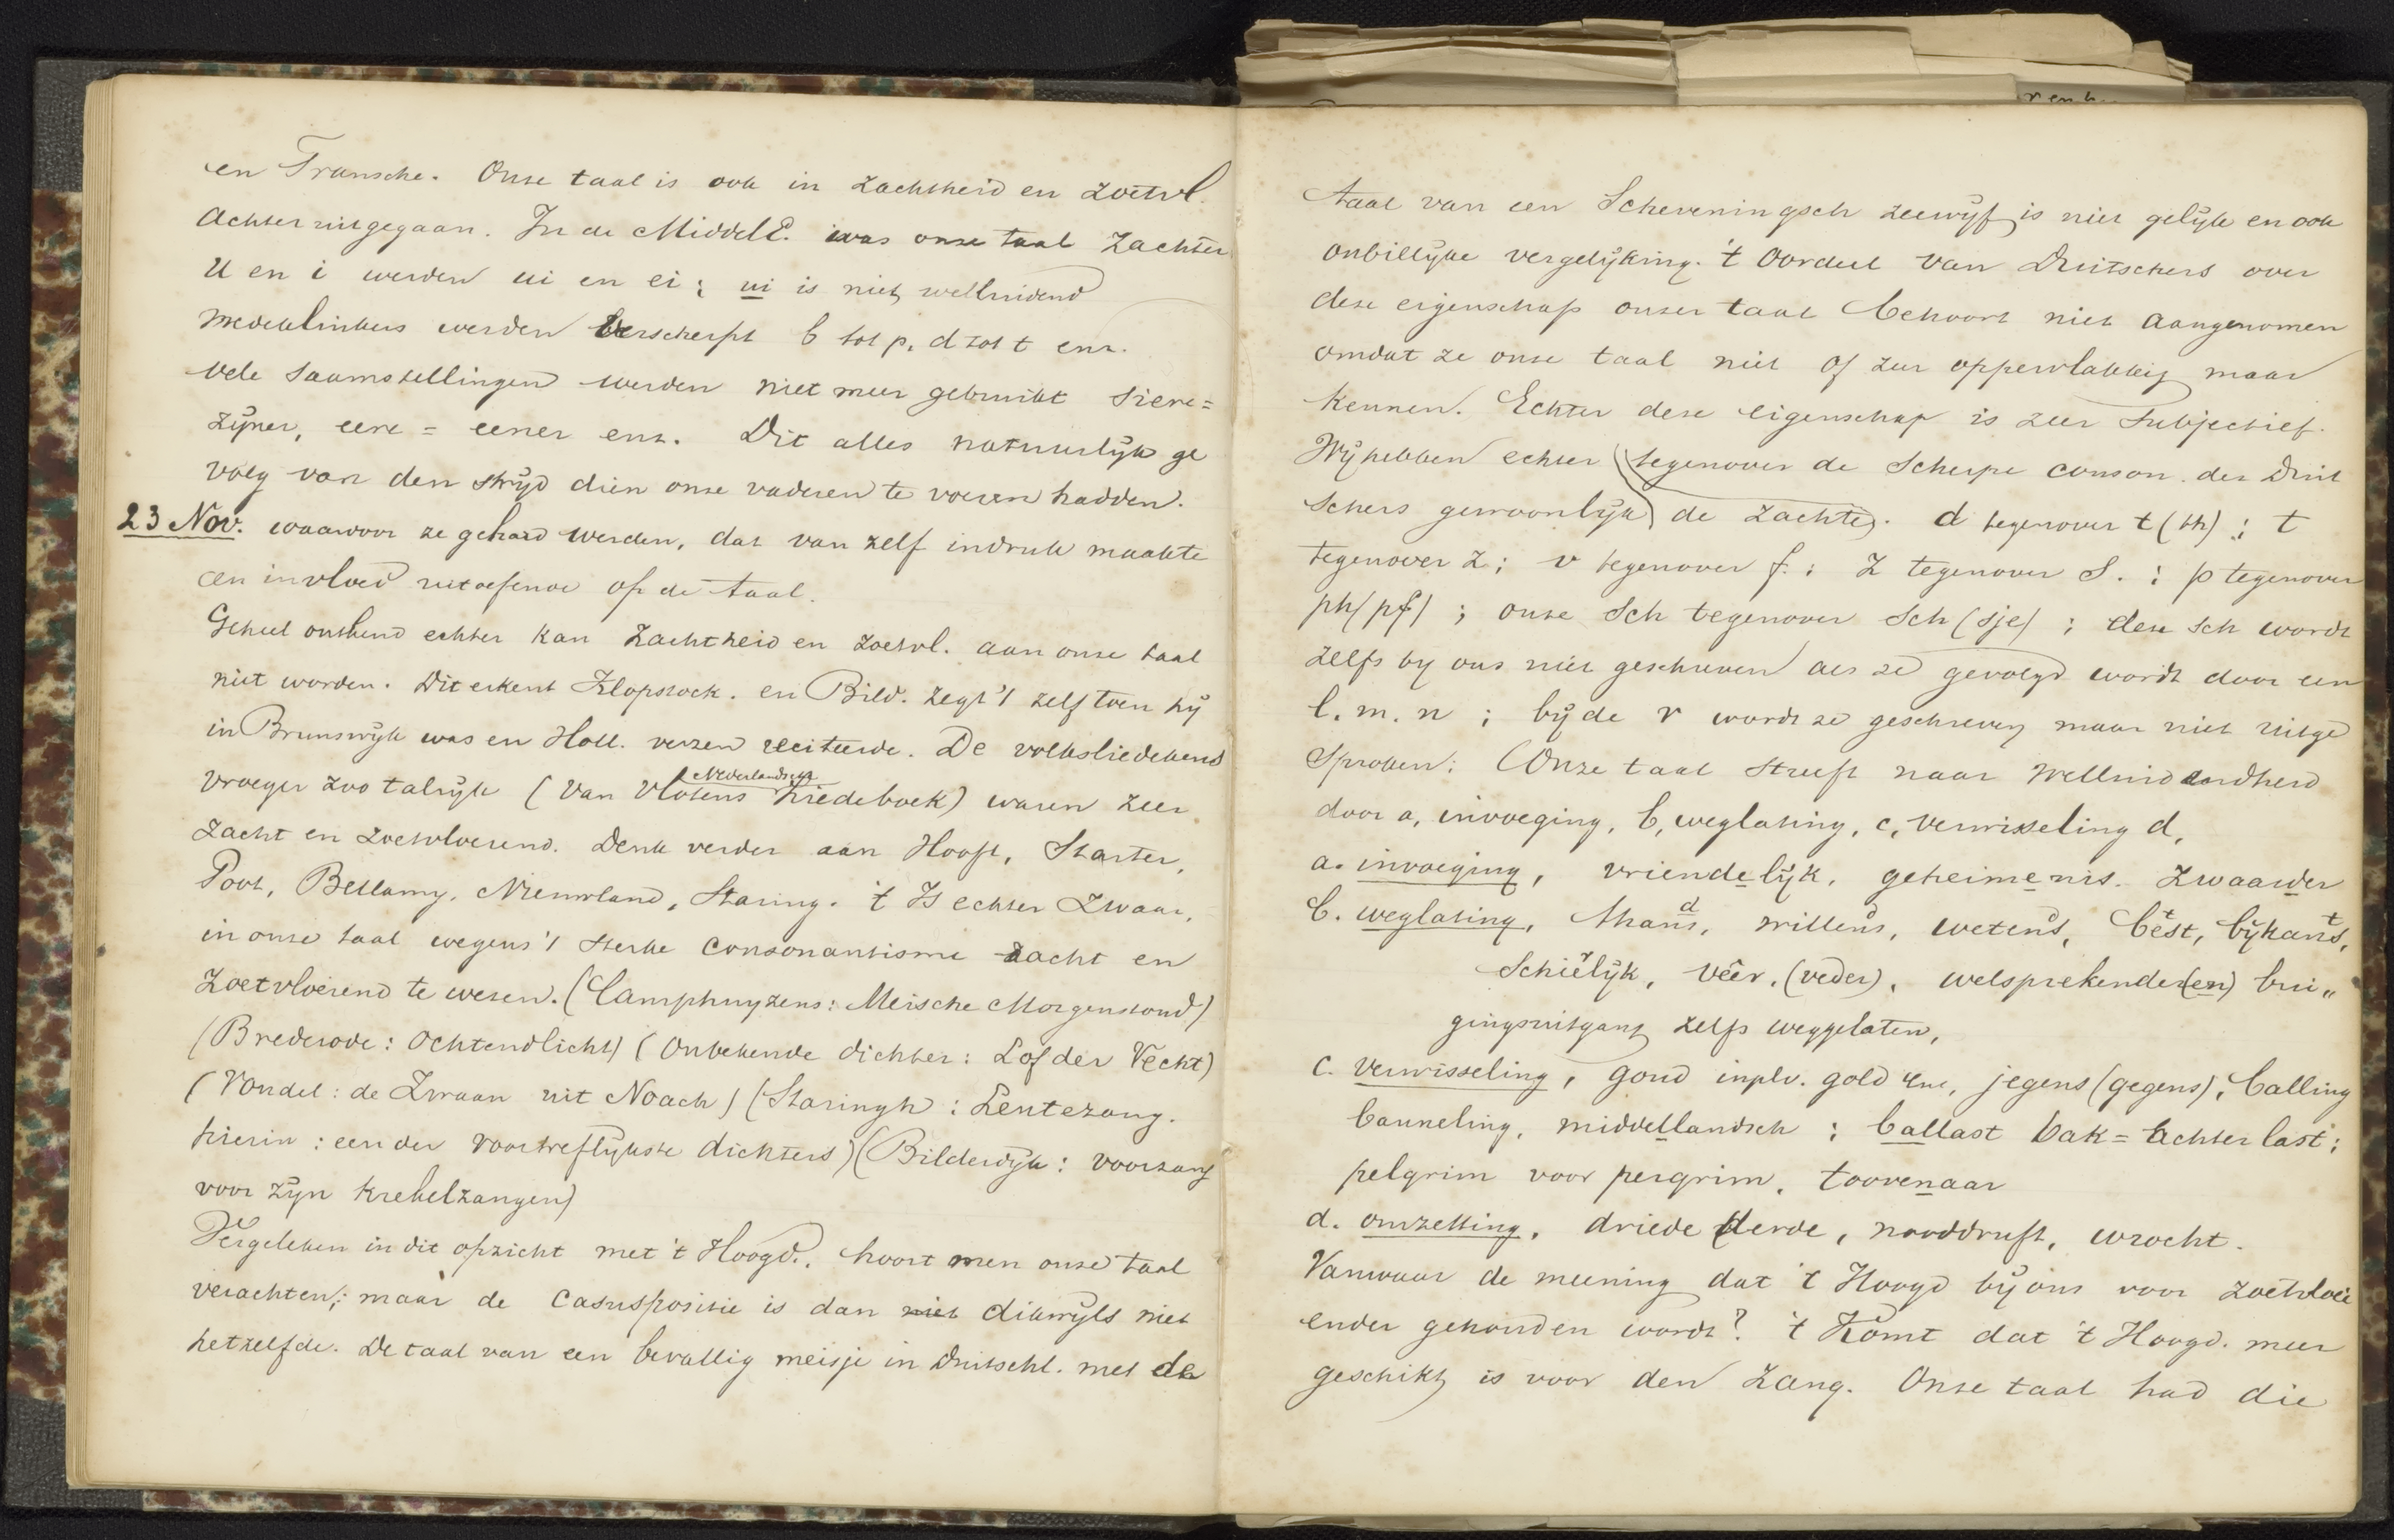 en Fransche. Onze taal is ook in zachtheid en zoetvl.
achteruitgegaan. In de MiddelE. was onze taal zachter
U en i werden ui en ei; ui is niet welluidend
medeklinkers werden verscherpt b tot p, d tot t enz.
vele saamstellingen werden niet meer gebruikt siere =
zijner, eere = eener enz. Dit alles natuurlijk ge
volg van den strijd dien onze vaderen te voeren hadden.
23 Nov. waarvoor ze gehard werden, dat van zelf indruk maakte
en invloed uitoefende op de taal.
Geheel ontkend echter kan zachtheid en zoetvl. aan onze taal
niet worden. Dit erkent Klopstock. en Bild. zegt 't zelf toen hij
in Brunswijk was en Holl. verzen reciteerde. De volksliedekens
Nederlandsche
vroeger zoo talrijk (Van Vlotens Liedeboek) waren zeer
zacht en zoetvloeiend. Denk verder aan Hooft, Starter,
Poot, Bellamy, Nieuwland, Staring. 't Is echter zwaar,
in onze taal wegens 't sterke consonantisme zacht en
zoetvloeiend te wezen. (Camphuyzens: Meische Morgenstond)
(Brederode: Ochtendlicht) (Onbekende dichter: Lof der Vecht)
(Vondel: de Zwaan uit Noach) (Staringh: Lentezang.
hierin: een der voortreflijkste dichters) (Bilderdijk: voorzang
voor zijn krekelzangen)
Vergeleken in dit opzicht met 't Hoogd., hoort men onze taal
verachten; maar de casuspositie is dan niet dikwijls niet
hetzelfde. De taal van een bevallig meisje in Duitschl. met de
taal van een Scheveningsch zeewijf is niet gelijk en ook
onbillijke vergelijking. 't Oordeel van Duitschers over
deze eigenschap onzer taal behoort niet aangenomen
omdat ze onze taal niet of zeer oppervlakkig maar
kennen. Echter deze eigenschap is zeer subjectief.
Wij hebben echter (tegenover de scherpe conson. der Duit
schers gewoonlijk) de zachte. d tegenover t (th); t
tegenover z; v tegenover f.; z tegenover S.; p tegenover
ph (pf); onze sch tegenover Sch (sje); deze sch wordt
zelfs by ons niet geschreven als ze gevolgd wordt door een
l. m. n; bij de r wordt ze geschreven maar niet uitge
sproken: (Onze taal streeft naar welluidendheid
door a, invoeging, b, weglating, c, verwisseling d,
a. invoeging, vriendelijk, geheimenis. zwaarder
d d d t t
b. weglating, thans, willens, wetens, best, bijkans,
schielijk, vêer, (veder), welsprekender(en) bui„
gingsuitgang zelfs weggelaten,
c. verwisseling, goud inplv. gold enz, jegens (gegens), balling
banneling, middellandsch; ballast bak = achter last;
pelgrim voor pergrim, toovenaar
d. omzetting, driede derde, nooddruft, wrocht.
Vanwaar de meening dat 't Hoogd bij ons voor zoetvloei
ender gehouden wordt? 't Komt dat 't Hoogd. meer
geschikt is voor den zang. Onze taal had die